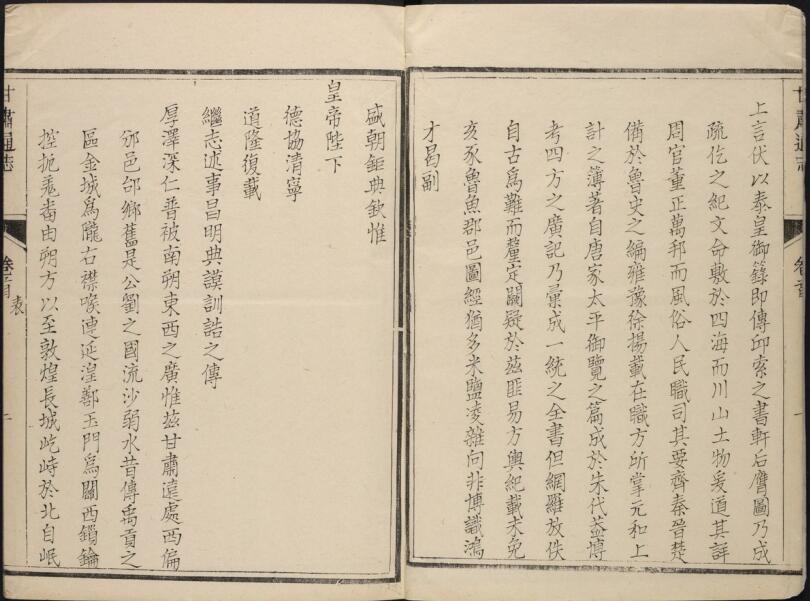 上言伏以泰皇御籙即傳邱索之書軒后膺圖乃成
疏仡之紀文命敷於四海而川山土物爰道其詳
周官董正萬邦而風俗人民職司其要齊秦晉楚
備於魯史之編雍豫徐揚載在職方所掌元和上
計之薄著自唐家太平御覽之篇成於朱代益博
考四方之廣記乃彙成一統之全書但網羅放佚
自古爲難而釐定闕疑於茲匪易方輿紀載未免
亥豕魯魚郡邑圖經猶多米鹽凌雜向非博識鴻
才曷副
盛朝鉅典欽惟
皇帝陛下
德協清寧
道隆復載
繼志述事昌明典謨訓誥之傳
厚澤深仁普被南朔東西之廣惟茲甘肅遠處西偏
邠邑邰鄉舊是公劉之國流沙弱水昔傳禹貢之
區金城爲隴右襟喉連延湟鄯玉門爲關西鎖鑰
控扼羗畨由朔方以至敦煌長城屹峙於北自岷
甘肅通志
卷之首
表
一